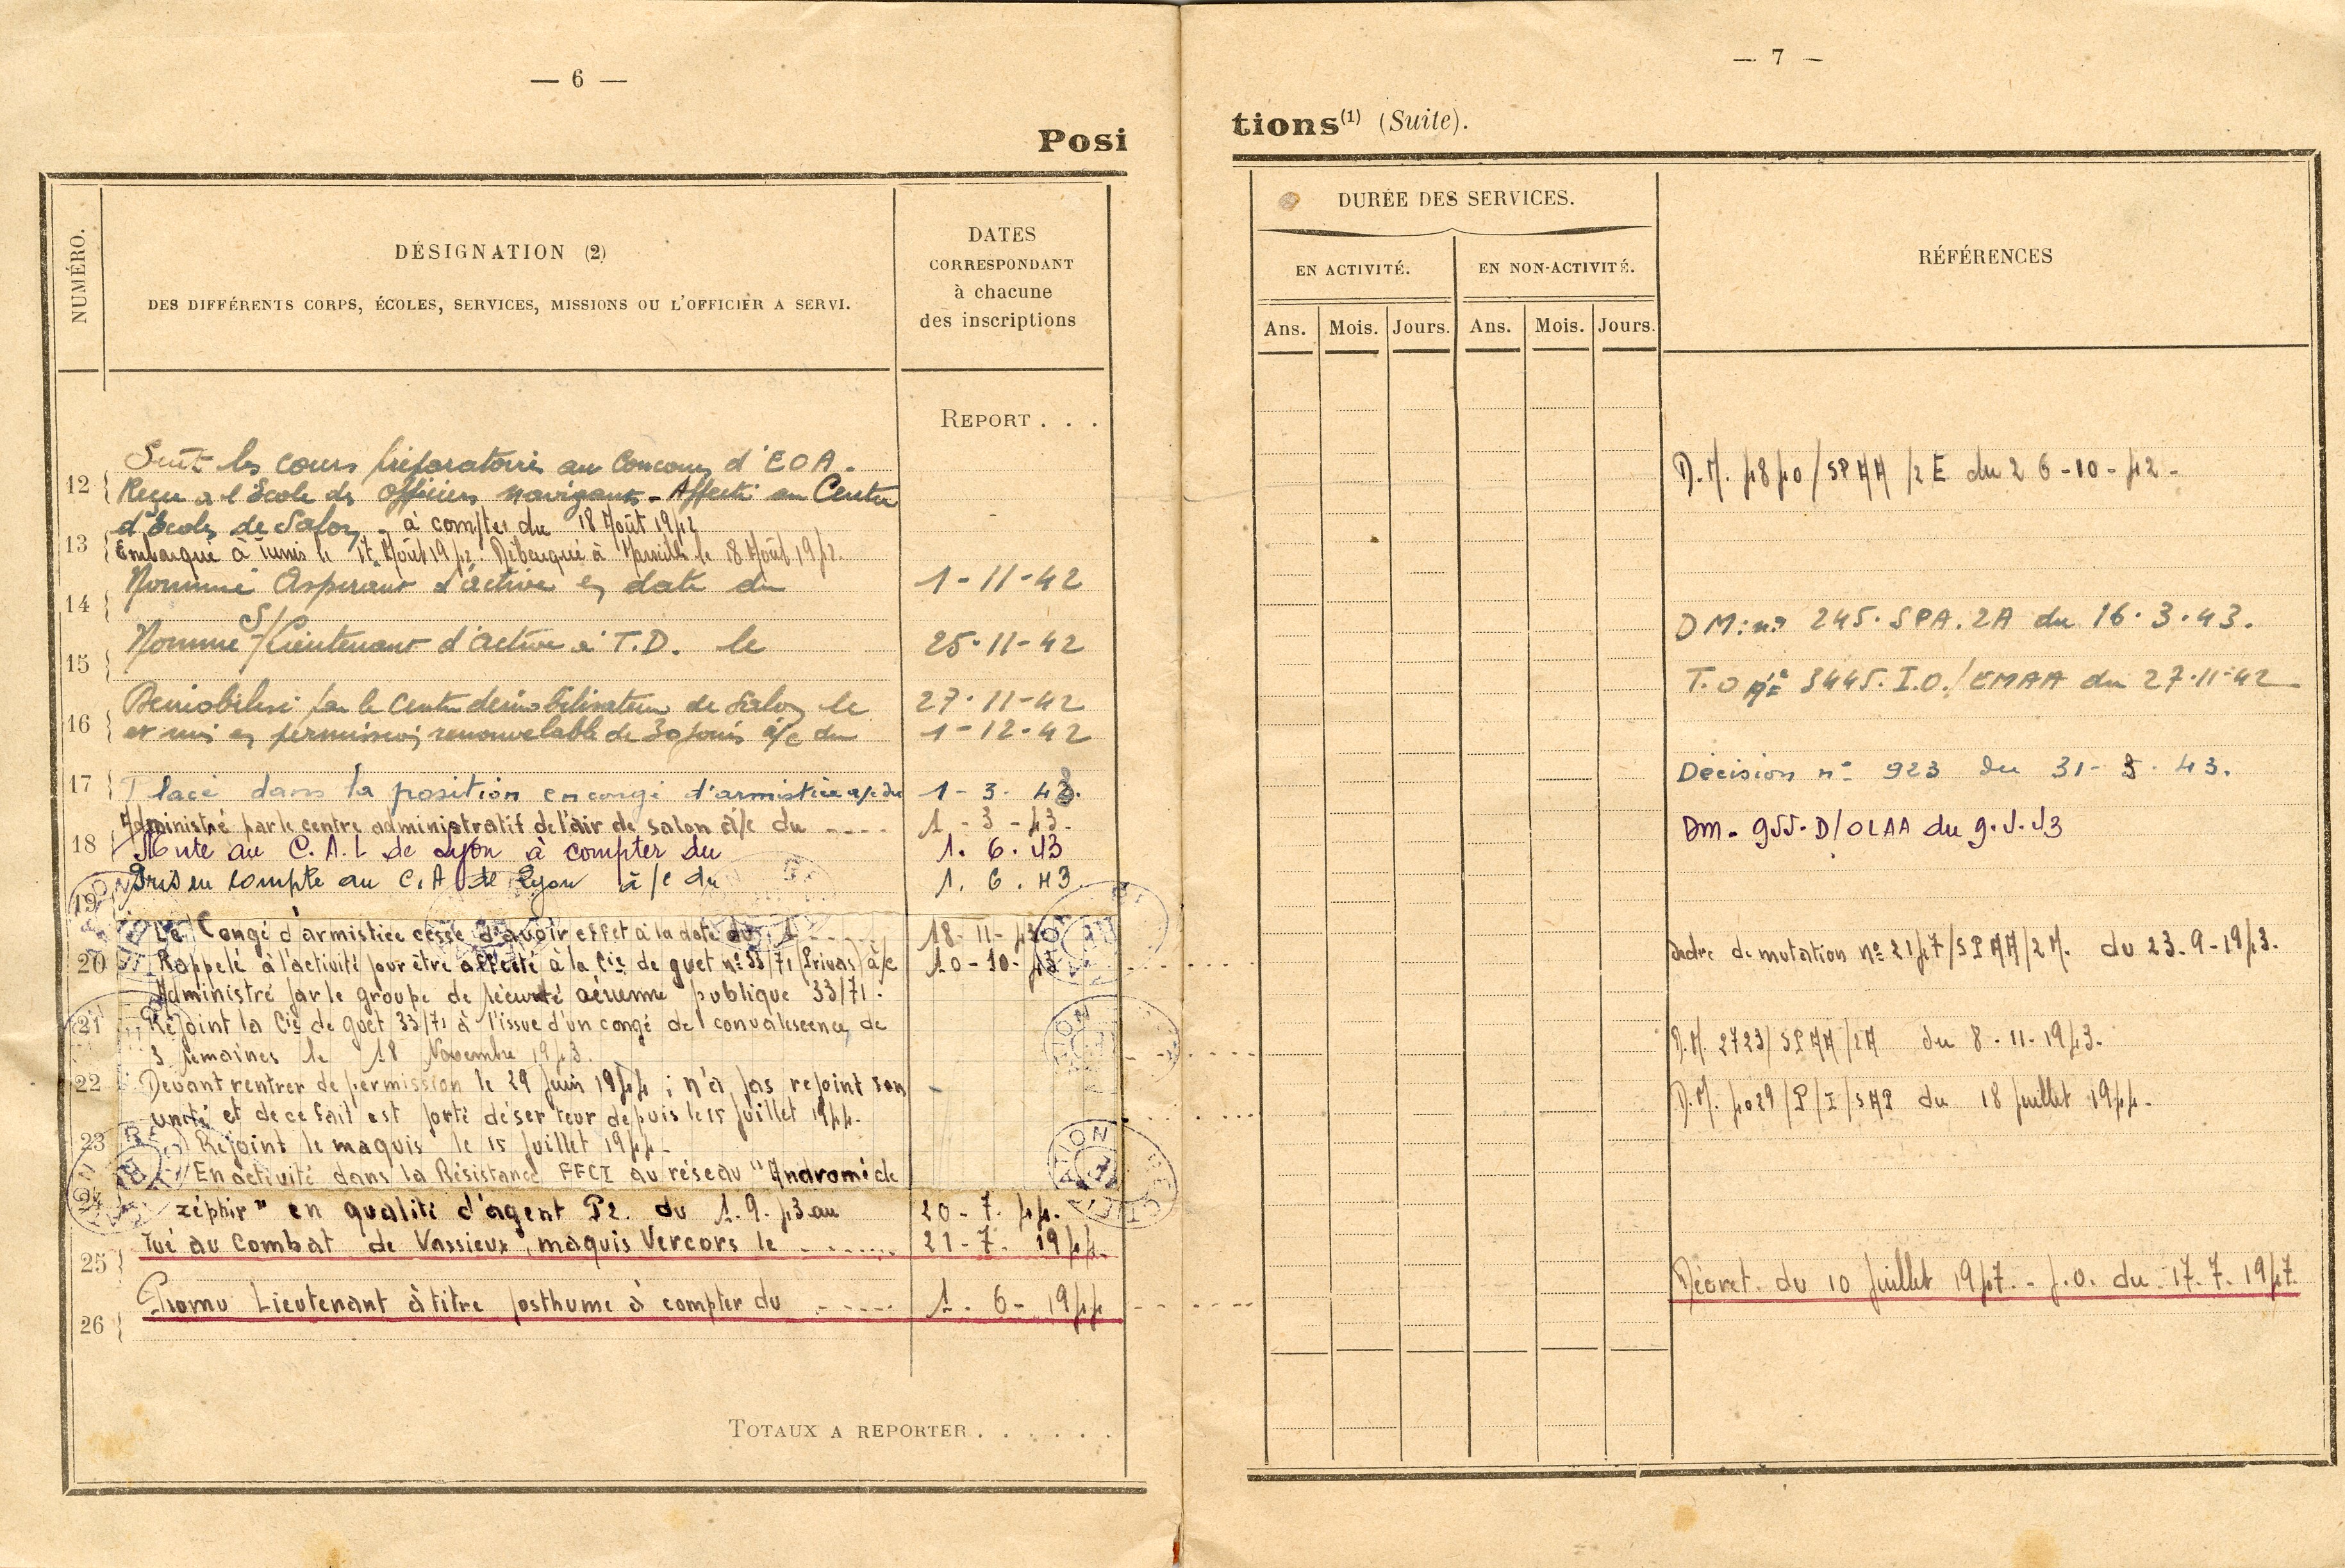 — 6 —
Posi
NUMÉRO.
DÉSIGNATION (2)
DES DIFFÉRENTS CORPS, ÉCOLES, SERVICES, MISSIONS OU L'OFFICIER A SERVI.
DATES
CORRESPONDANT
à chacune
des inscriptions
REPORT . . .
Suit les cours préparatoires au Concours d'EOA.
12 Reçu à l'École des officiers navigants - Affecté au Centre
d'École de Salon - à compter du 18 Août 1942
13 Embarqué à Tunis le 17 Août 1942. Débarqué à Marseille le 8 Août 1942.
Nommé Aspirant d'active en date du 1-11-42
14
Nommé S/Lieutenant d'active à T.D. le 25-11-42
15
Démobilisé par le Centre démobilisateur de Salon le 27-11-42
16 et mis en permission renouvelable de 30 jours à/c du 1-12-42
17 Placé dans la position en congé d'armistice a/c du 1-3-43.
Administré par le centre administratif de l'air de Salon à/c du ---- 1-3-43.
18 Muté au C.A.L de Lyon à compter du 1.6.43
Pris en compte au C.A de Lyon à/c du 1.6.43
19
Le Congé d'armistice cesse d'avoir effet à la date du 18-11-43
20 Rappelé à l'activité pour être affecté à la Cie de guet n° 33/71 (Privas) à/c 10-10-43
Administré par le groupe de sécurité aérienne publique 33/71.
21 Rejoint la Cie de guet 33/71 à l'issue d'un congé de convalescence de
3 semaines le 18 Novembre 1943.
22 Devant rentrer de permission le 29 Juin 1944 ; n'a pas rejoint son
unité et de ce fait est porté déserteur depuis le 15 Juillet 1944.
23 Rejoint le maquis le 15 Juillet 1944.
En activité dans la Résistance FFCI au réseau "Andromède
24 zéphir" en qualité d'agent P2. du 1.9.43 au 20-7.44.
Tué au combat de Vassieux, maquis Vercors le ....... 21-7.1944.
25
Promu Lieutenant à titre posthume à compter du ----- 1.6-1944
26
TOTAUX A REPORTER . . . . . .
— 7 —
tions (1) (Suite).
DURÉE DES SERVICES.
EN ACTIVITÉ.
EN NON-ACTIVITÉ.
Ans. Mois. Jours. Ans. Mois. Jours.
RÉFÉRENCES
D.M. 4840/SPAA/2E du 26-10-42-
DM: n° 245.SPA.2A du 16.3.43.
T.O 3445.I.O./EMAA du 27-11-42
Décision n° 923 du 31-3-43.
DM. 955.D/OLAA du 9.4.43
ordre de mutation n° 2147/SPAA/2M. du 23.9-1943.
D.M. 2723/SPAA/2A du 8-11-1943.
D.M. 4029/P/I/SAP du 18 Juillet 1944.
Décret du 10 Juillet 1947.- J.O. du 17.7.1947.